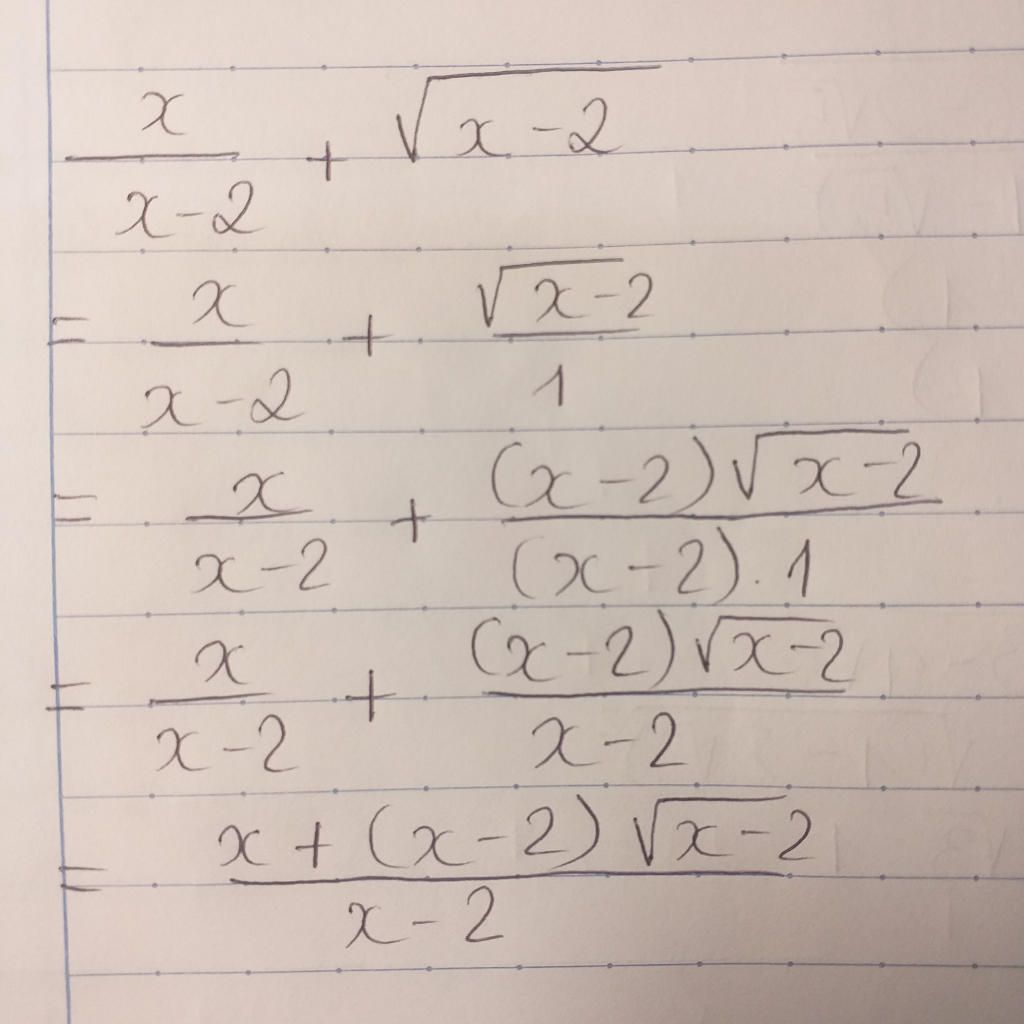 x/(x-2) + √(x-2)
= x/(x-2) + √(x-2)/1
= x/(x-2) + (x-2)√(x-2)/((x-2).1)
= x/(x-2) + (x-2)√(x-2)/(x-2)
= (x+(x-2)√(x-2))/(x-2)